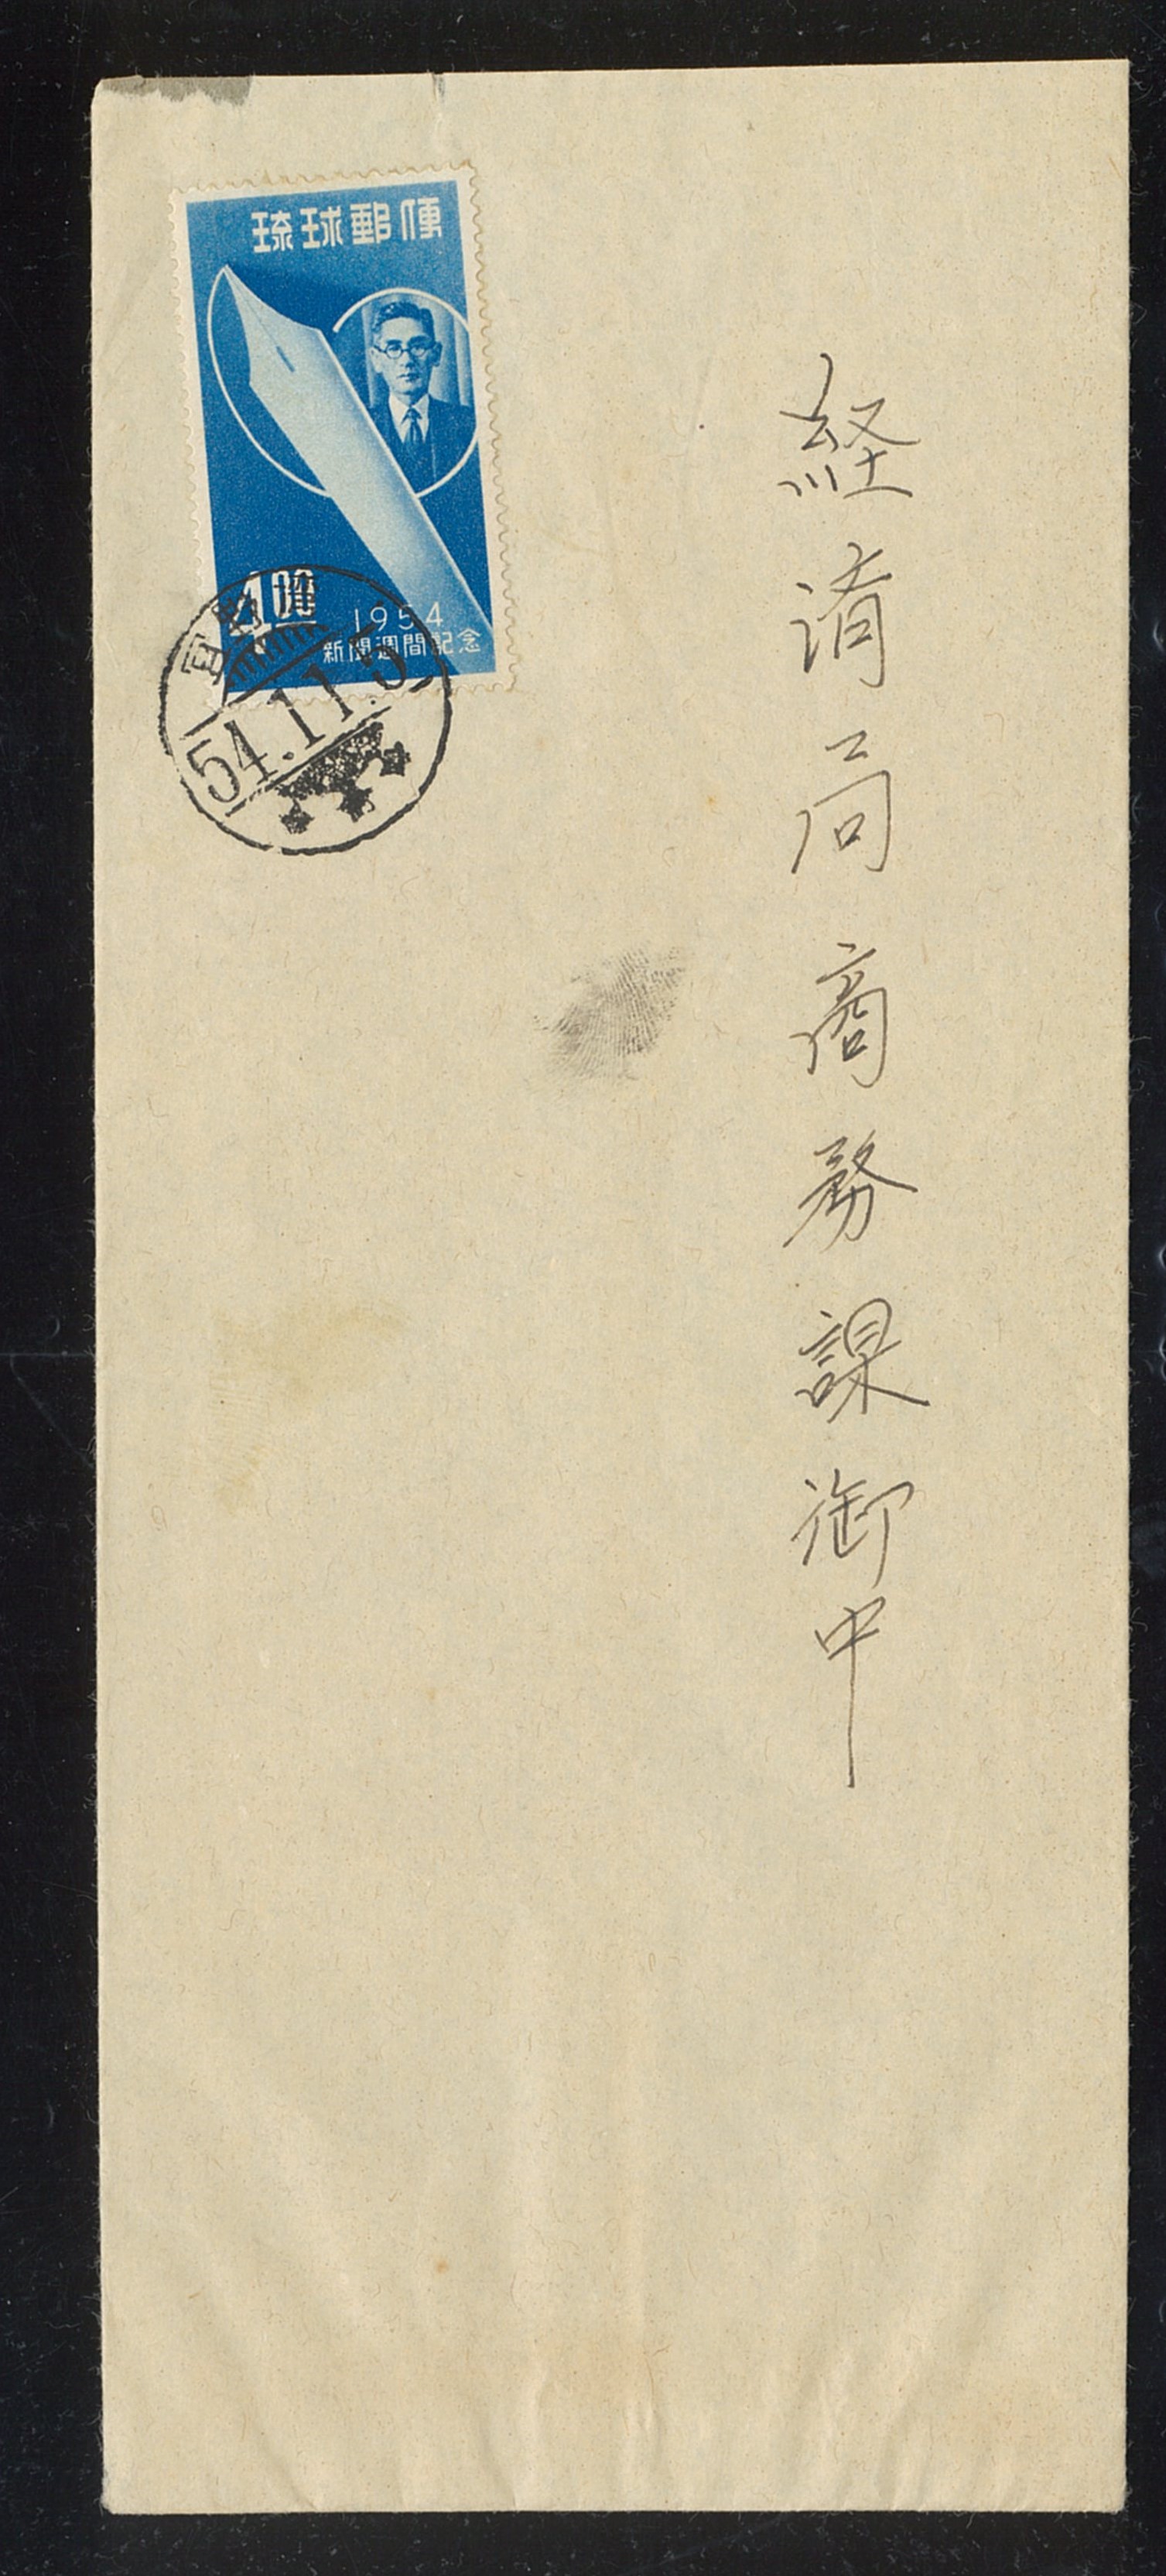 琉球郵便
4.00
1954
新聞週間記念
宜野座
54.11.5
経済局商務課御中